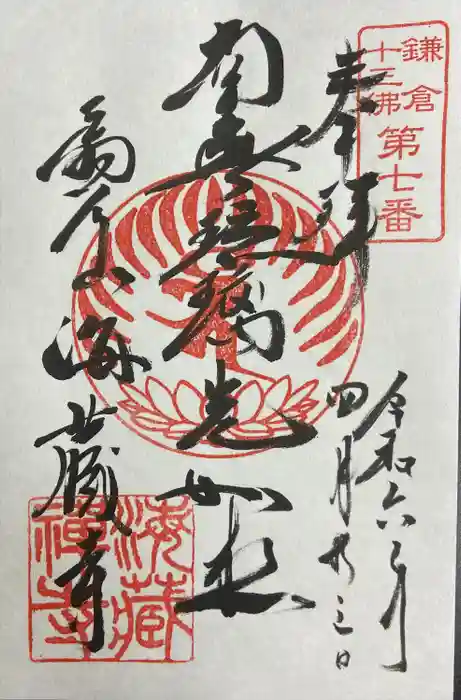 鎌倉
十三佛
第七番
奉拝
令和六年
四月
南無瑠璃光如来
扇谷山海蔵寺
海藏
禪寺